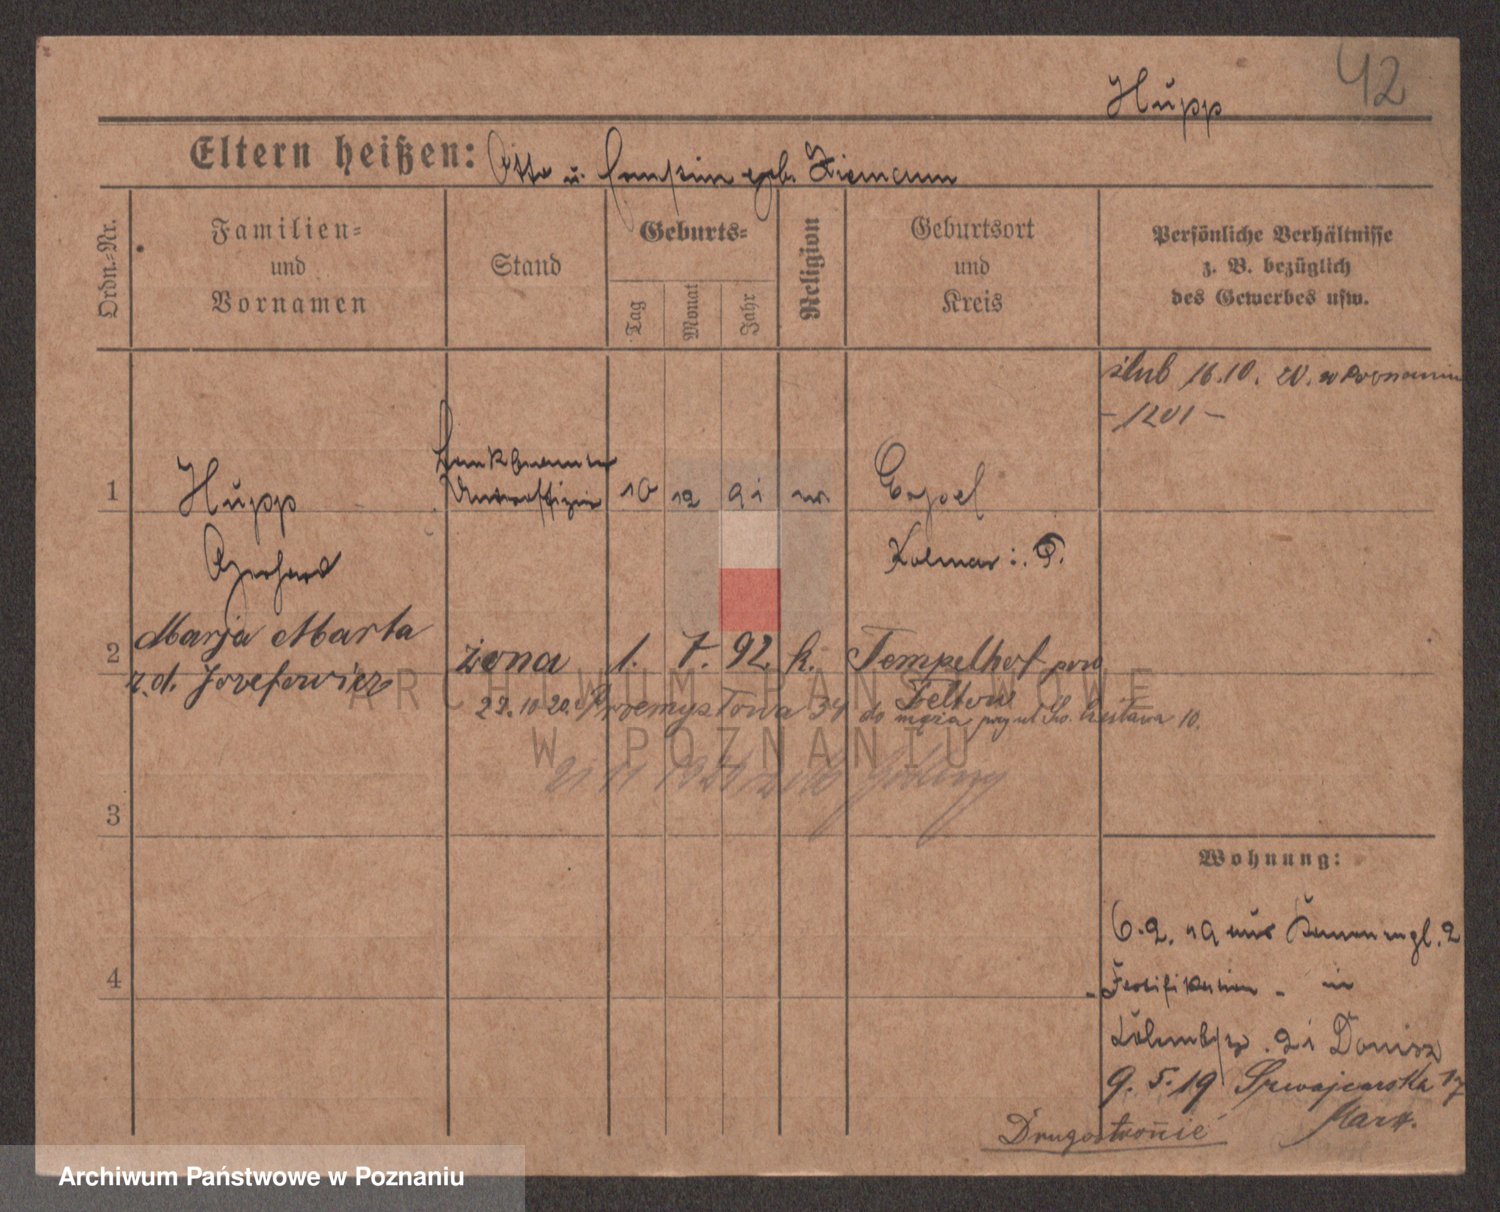 42
Hupp
Eltern heißen: Otto u. geb. Ziemann
Ordn.-Nr.
Familien-
und
Vornamen
Stand
Geburts-
Tag
Monat
Jahr
Religion
Geburtsort
und
Kreis
Persönliche Verhältnisse
z. B. bezüglich
des Gewerbes usw.
ślub 16.10. 20. w Poznaniu
- 1201 -
1
Hupp
Gerhard
Bankbeamter
Unteroffizier
10 12 91
Kolmar i. P.
2
Marja Marta
z. d. Józefowicz
żona
1. 7. 92. k.
Tempelhof pow
Teltow
22.10.20. Przemysłowa 34 do męża przy ul. Św. 10.
ARCHIWUM PAŃSTWOWE
W POZNANIU
21 11 1920
3
4
Wohnung:
6.2.19 aus 2
- Fortifikation - in
21
9. 5. 19 Szwajcarska 17
Mark.
Drugostronie
Archiwum Państwowe w Poznaniu